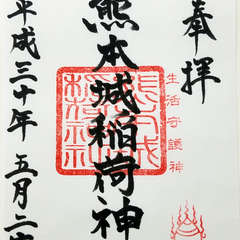 奉拝
生活守護神
熊本城稲荷神
平成三十年五月二